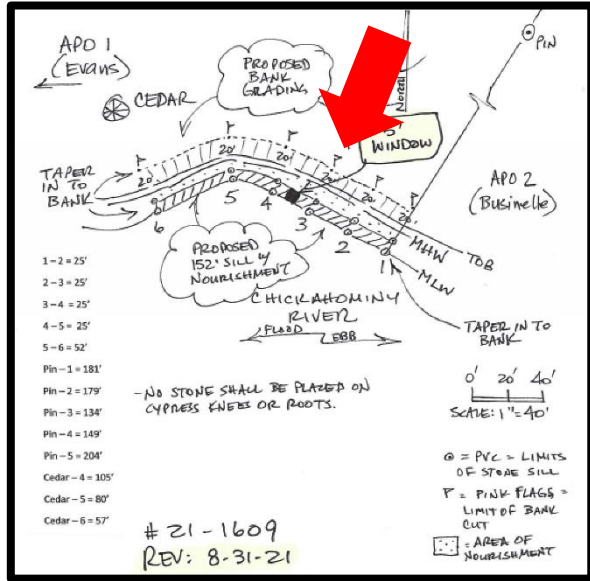 APO 1
(Evans)
CEDAR
PROPOSED
BANK
GRADING
NORTH
PIN
WINDOW
20'
20'
20'
20'
20'
TAPER
IN TO
BANK
APO 2
(Businelle)
6
5
4
3
2
1
MHW
TOB
MLW
PROPOSED
152' SILL W/
NOURISHMENT
CHICKAHOMINY
RIVER
FLOOD
EBB
TAPER IN TO
BANK
1-2 = 25'
2-3 = 25'
3-4 = 25'
4-5 = 25'
5-6 = 52'
Pin-1 = 181'
Pin-2 = 179'
Pin-3 = 134'
Pin-4 = 149'
Pin-5 = 204'
Cedar-4 = 105'
Cedar-5 = 80'
Cedar-6 = 57'
- NO STONE SHALL BE PLACED ON
CYPRESS KNEES OR ROOTS.
0' 20' 40'
SCALE: 1"=40'
= PVC = LIMITS
OF STONE SILL
= PINK FLAGS =
LIMIT OF BANK
CUT
= AREA OF
NOURISHMENT
# 21-1609
REV: 8-31-21